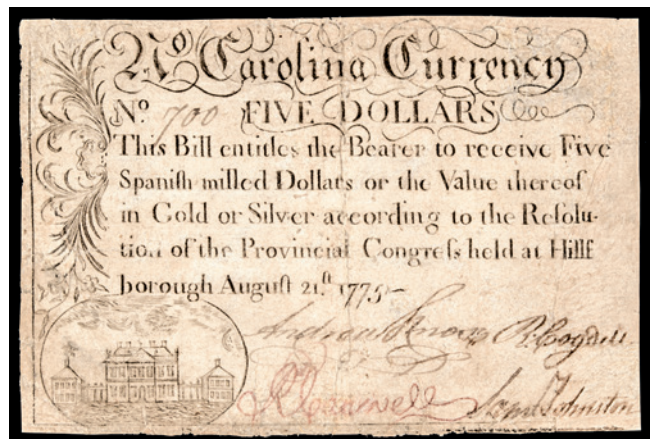 No Carolina Currency
No. 700 FIVE DOLLARS
This Bill entitles the Bearer to receive Five
Spaniſh milled Dollars or the Value thereof
in Gold or Silver according to the Reſolu-
tion of the Provincial Congreſs held at Hillſ
borough August 21.ſt 1775
Andrew Knox R. Cogdell
Saml Johnston